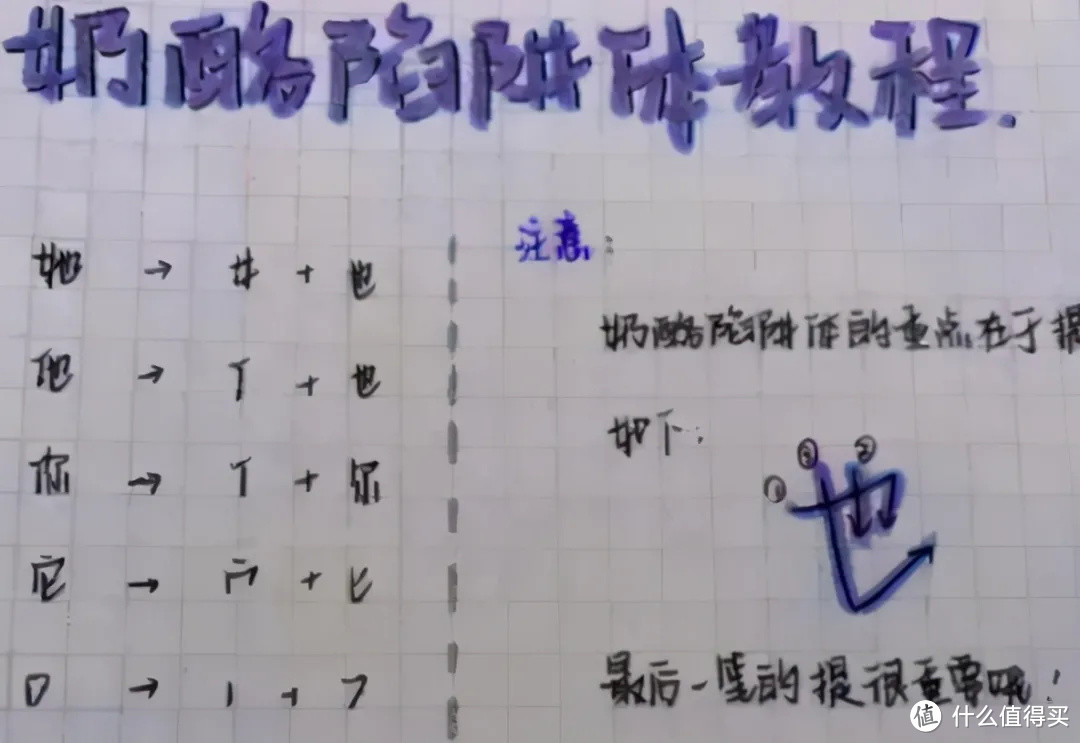 奶酪陷阱体教程.
她 → 女 + 也
他 → 亻 + 也
你 → 亻 + 尔
它 → 宀 + 匕
口 → 丨 + ㇆
注意:
奶酪陷阱体的重点在于提
如下:
① ③ ②
也
最后一笔的提很重要哦!
值 什么值得买